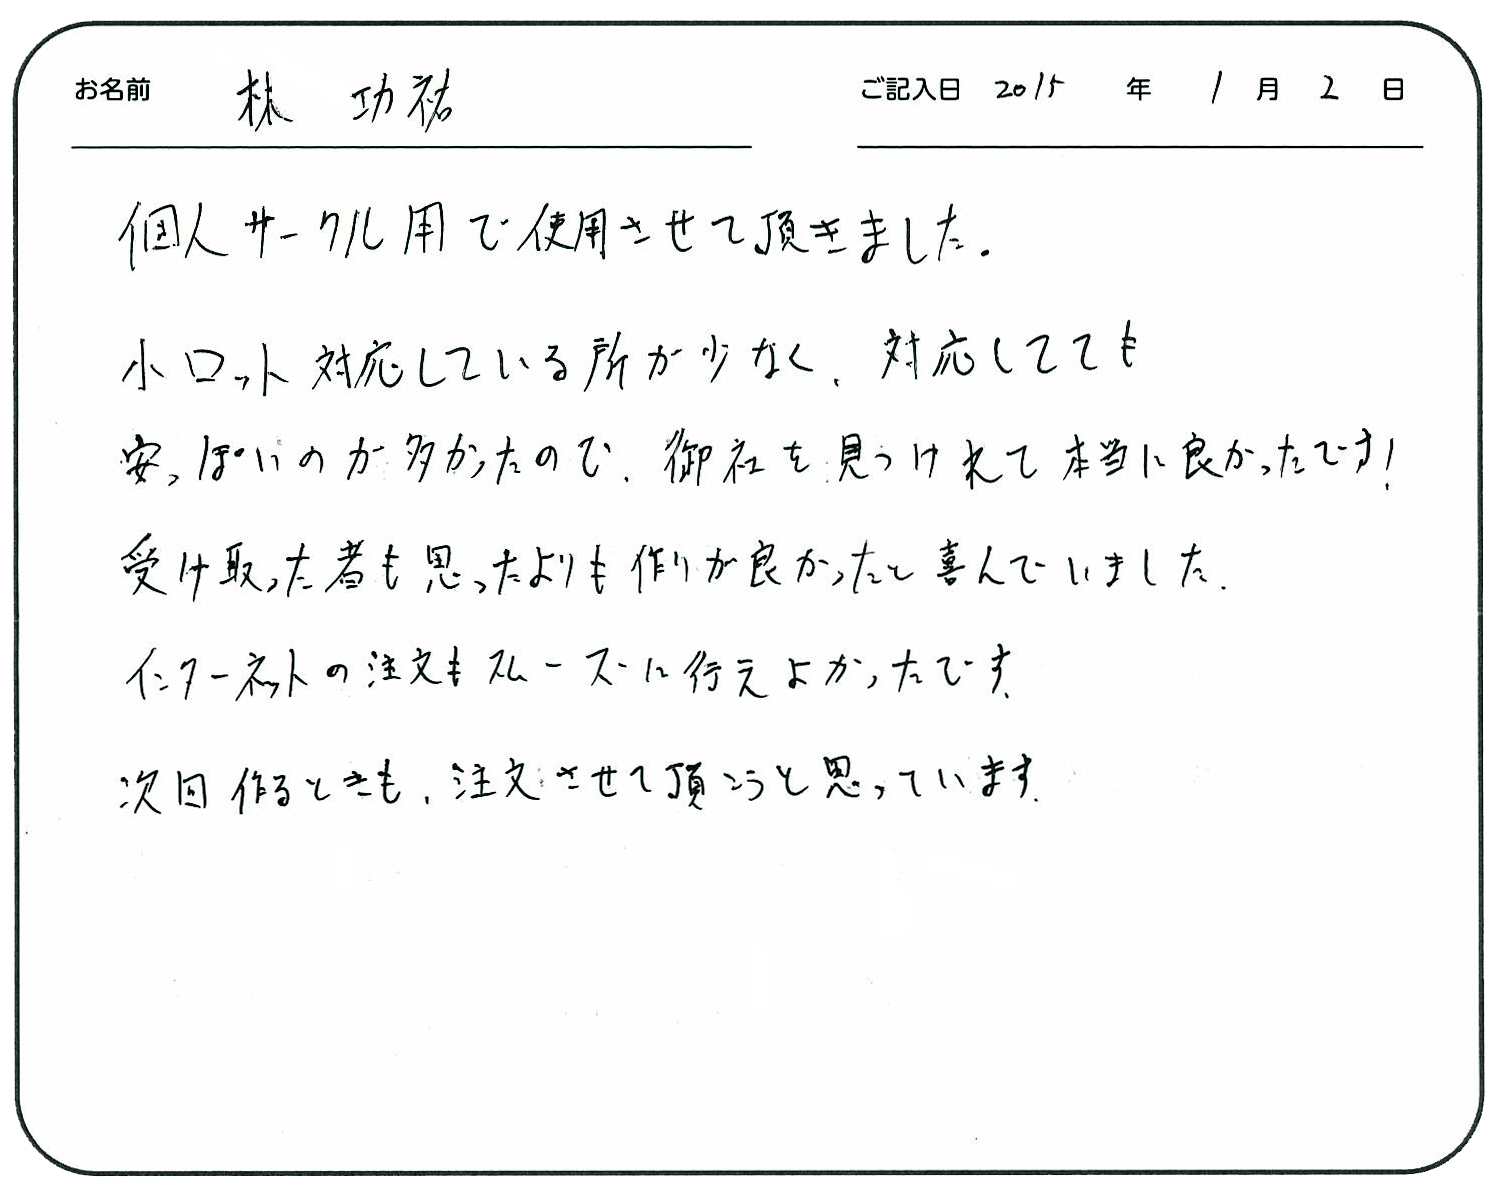 お名前 林 功祐 ご記入日 2015 年 1 月 2 日
個人サークル用で使用させて頂きました.
小ロット対応している所が少なく、対応してても
安っぽいのが多かったので、御社を見つけれて本当に良かったです!
受け取った者も思ったよりも作りが良かったと喜んでいました.
インターネットの注文もスムーズに行えよかったです.
次回作るときも、注文させて頂こうと思っています.